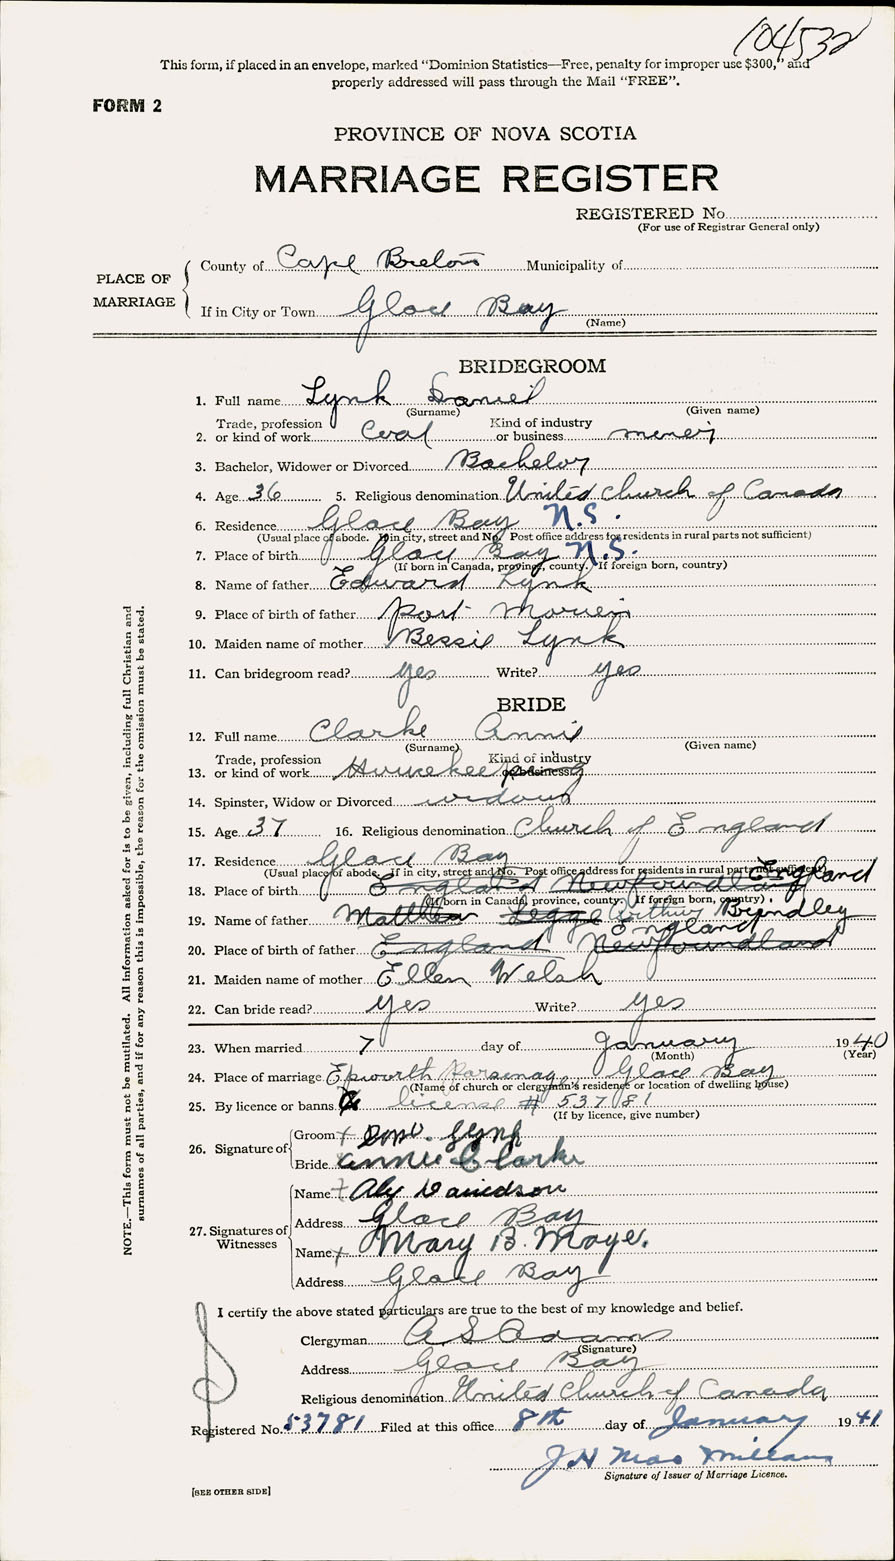 104532
This form, if placed in an envelope, marked “Dominion Statistics—Free, penalty for improper use $300,” and
properly addressed will pass through the Mail “FREE”.
FORM 2
PROVINCE OF NOVA SCOTIA
MARRIAGE REGISTER
REGISTERED No.
(For use of Registrar General only)
PLACE OF MARRIAGE
County of Cape Breton Municipality of
If in City or Town Glace Bay
(Name)
BRIDEGROOM
1. Full name Lynk Daniel
(Surname) (Given name)
2. Trade, profession or kind of work Coal Kind of industry or business miner
3. Bachelor, Widower or Divorced Bachelor
4. Age 36 5. Religious denomination United Church of Canada
6. Residence Glace Bay N.S.
(Usual place of abode. If in city, street and No. Post office address for residents in rural parts not sufficient)
7. Place of birth Glace Bay N.S.
(If born in Canada, province, county. If foreign born, country)
8. Name of father Edward Lynk
9. Place of birth of father Port Morien
10. Maiden name of mother Bessie Lynk
11. Can bridegroom read? yes Write? yes
BRIDE
12. Full name Clarke Annie
(Surname) (Given name)
13. Trade, profession or kind of work Housekeeping Kind of industry or business
14. Spinster, Widow or Divorced widow
15. Age 37 16. Religious denomination Church of England
17. Residence Glace Bay
(Usual place of abode. If in city, street and No. Post office address for residents in rural parts not sufficient)
18. Place of birth England Newfoundland England
(If born in Canada, province, county. If foreign born, country)
19. Name of father Matthew Legge Arthur Brindley
England
20. Place of birth of father England Newfoundland
21. Maiden name of mother Ellen Welsh
22. Can bride read? yes Write? yes
23. When married 7 day of January 1940
(Month) (Year)
24. Place of marriage Epworth Parsonage, Glace Bay
(Name of church or clergyman's residence or location of dwelling house)
25. By licence or banns license # 53781
(If by licence, give number)
26. Signature of
Groom Lynk
Bride Annie Clarke
27. Signatures of Witnesses
Name Alex Davidson
Address Glace Bay
Name Mary B. Moye.
Address Glace Bay
I certify the above stated particulars are true to the best of my knowledge and belief.
Clergyman A S Adams
(Signature)
Address Glace Bay
Religious denomination United Church of Canada
Registered No. 53781 Filed at this office 8th day of January 1941
J H MacMillans
Signature of Issuer of Marriage Licence.
[SEE OTHER SIDE]
NOTE.—This form must not be mutilated. All information asked for is to be given, including full Christian and
surnames of all parties, and if for any reason this is impossible, the reason for the omission must be stated.